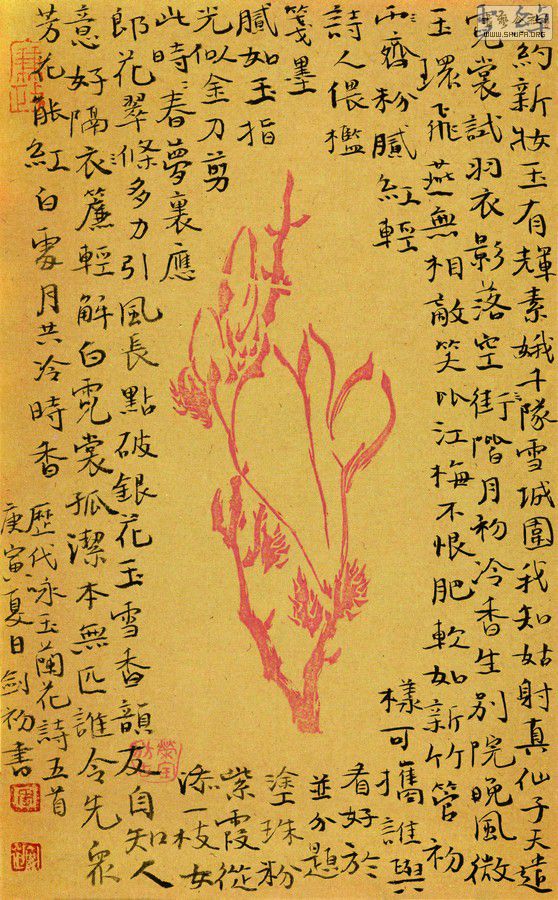 卓約新妝玉有輝素娥千隊雪城圍我知姑射真仙子天遣
霓裳試羽衣影落空街階月初冷香生別院晚風微
玉環飛燕無相敵笑以江梅不恨肥軟如新竹管初
齊粉膩紅輕樣可攜誰與
詩人偎檻看好於
箋墨並分題
膩如玉指塗珠粉
光似金刀剪紫霞從
此時春夢裏應添枝女
郎花翠條多力引風長點破銀花玉雪香韻友自知人
意好隔衣簾輕解白霓裳孤潔本無匹誰令先眾
芳花能紅白處月共冷時香
歷代咏玉蘭花詩五首
庚寅夏日劍初書
WWW.SHUFA.ORG